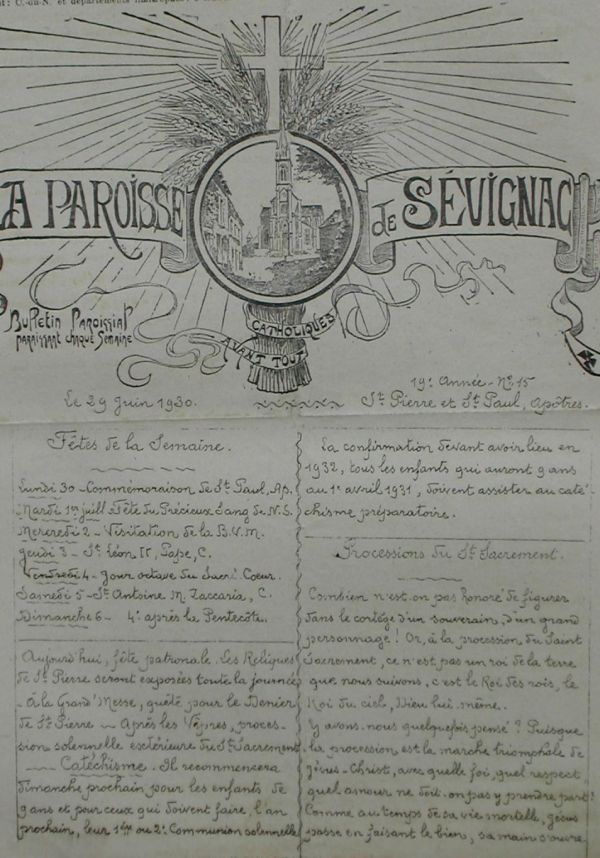 C.-du-N. et départements
LA PAROISSE de SÉVIGNAC
Bulletin Paroissial
paraissant chaque Semaine
CATHOLIQUES
AVANT TOUT
19e Année - No 15
Le 29 Juin 1930.
St Pierre et St Paul, Apôtres.
Fêtes de la Semaine.
Lundi 30 - Commémoraison de St Paul, Ap.
Mardi 1er juill - Fête du Précieux Sang de N.S.
Mercredi 2 - Visitation de la B.V.M.
Jeudi 3 - St Léon II, Pape, C.
Vendredi 4 - Jour octave du Sacré Coeur.
Samedi 5 - St Antoine M. Zaccaria, C.
Dimanche 6 - 4e après la Pentecôte.
Aujourd'hui, fête patronale. Les Reliques
de St Pierre seront exposées toute la journée
- A la Grand'Messe, quête pour le Denier
de St Pierre - Après les Vêpres, proces-
sion solennelle extérieure du St Sacrement
- Catéchisme. Il recommencera
dimanche prochain pour les enfants de
9 ans et pour ceux qui doivent faire, l'an
prochain, leur 1ère ou 2e Communion solennelle
La confirmation devant avoir lieu en
1932, tous les enfants qui auront 9 ans
au 1er avril 1931, doivent assister au caté-
chisme préparatoire.
Processions du St Sacrement.
Combien n'est-on pas honoré de figurer
dans le cortège d'un souverain, d'un grand
personnage ! Or, à la procession du Saint
Sacrement, ce n'est pas un roi de la terre
que nous suivons, c'est le Roi des rois, le
Roi du ciel, Dieu lui-même.
Y avons-nous quelquefois pensé ? Puisque
la procession est la marche triomphale de
Jésus-Christ, avec quelle foi, quel respect,
quel amour ne doit-on pas y prendre part !
Comme au temps de sa vie mortelle, Jésus
passe en faisant le bien, sa main s'ouvre